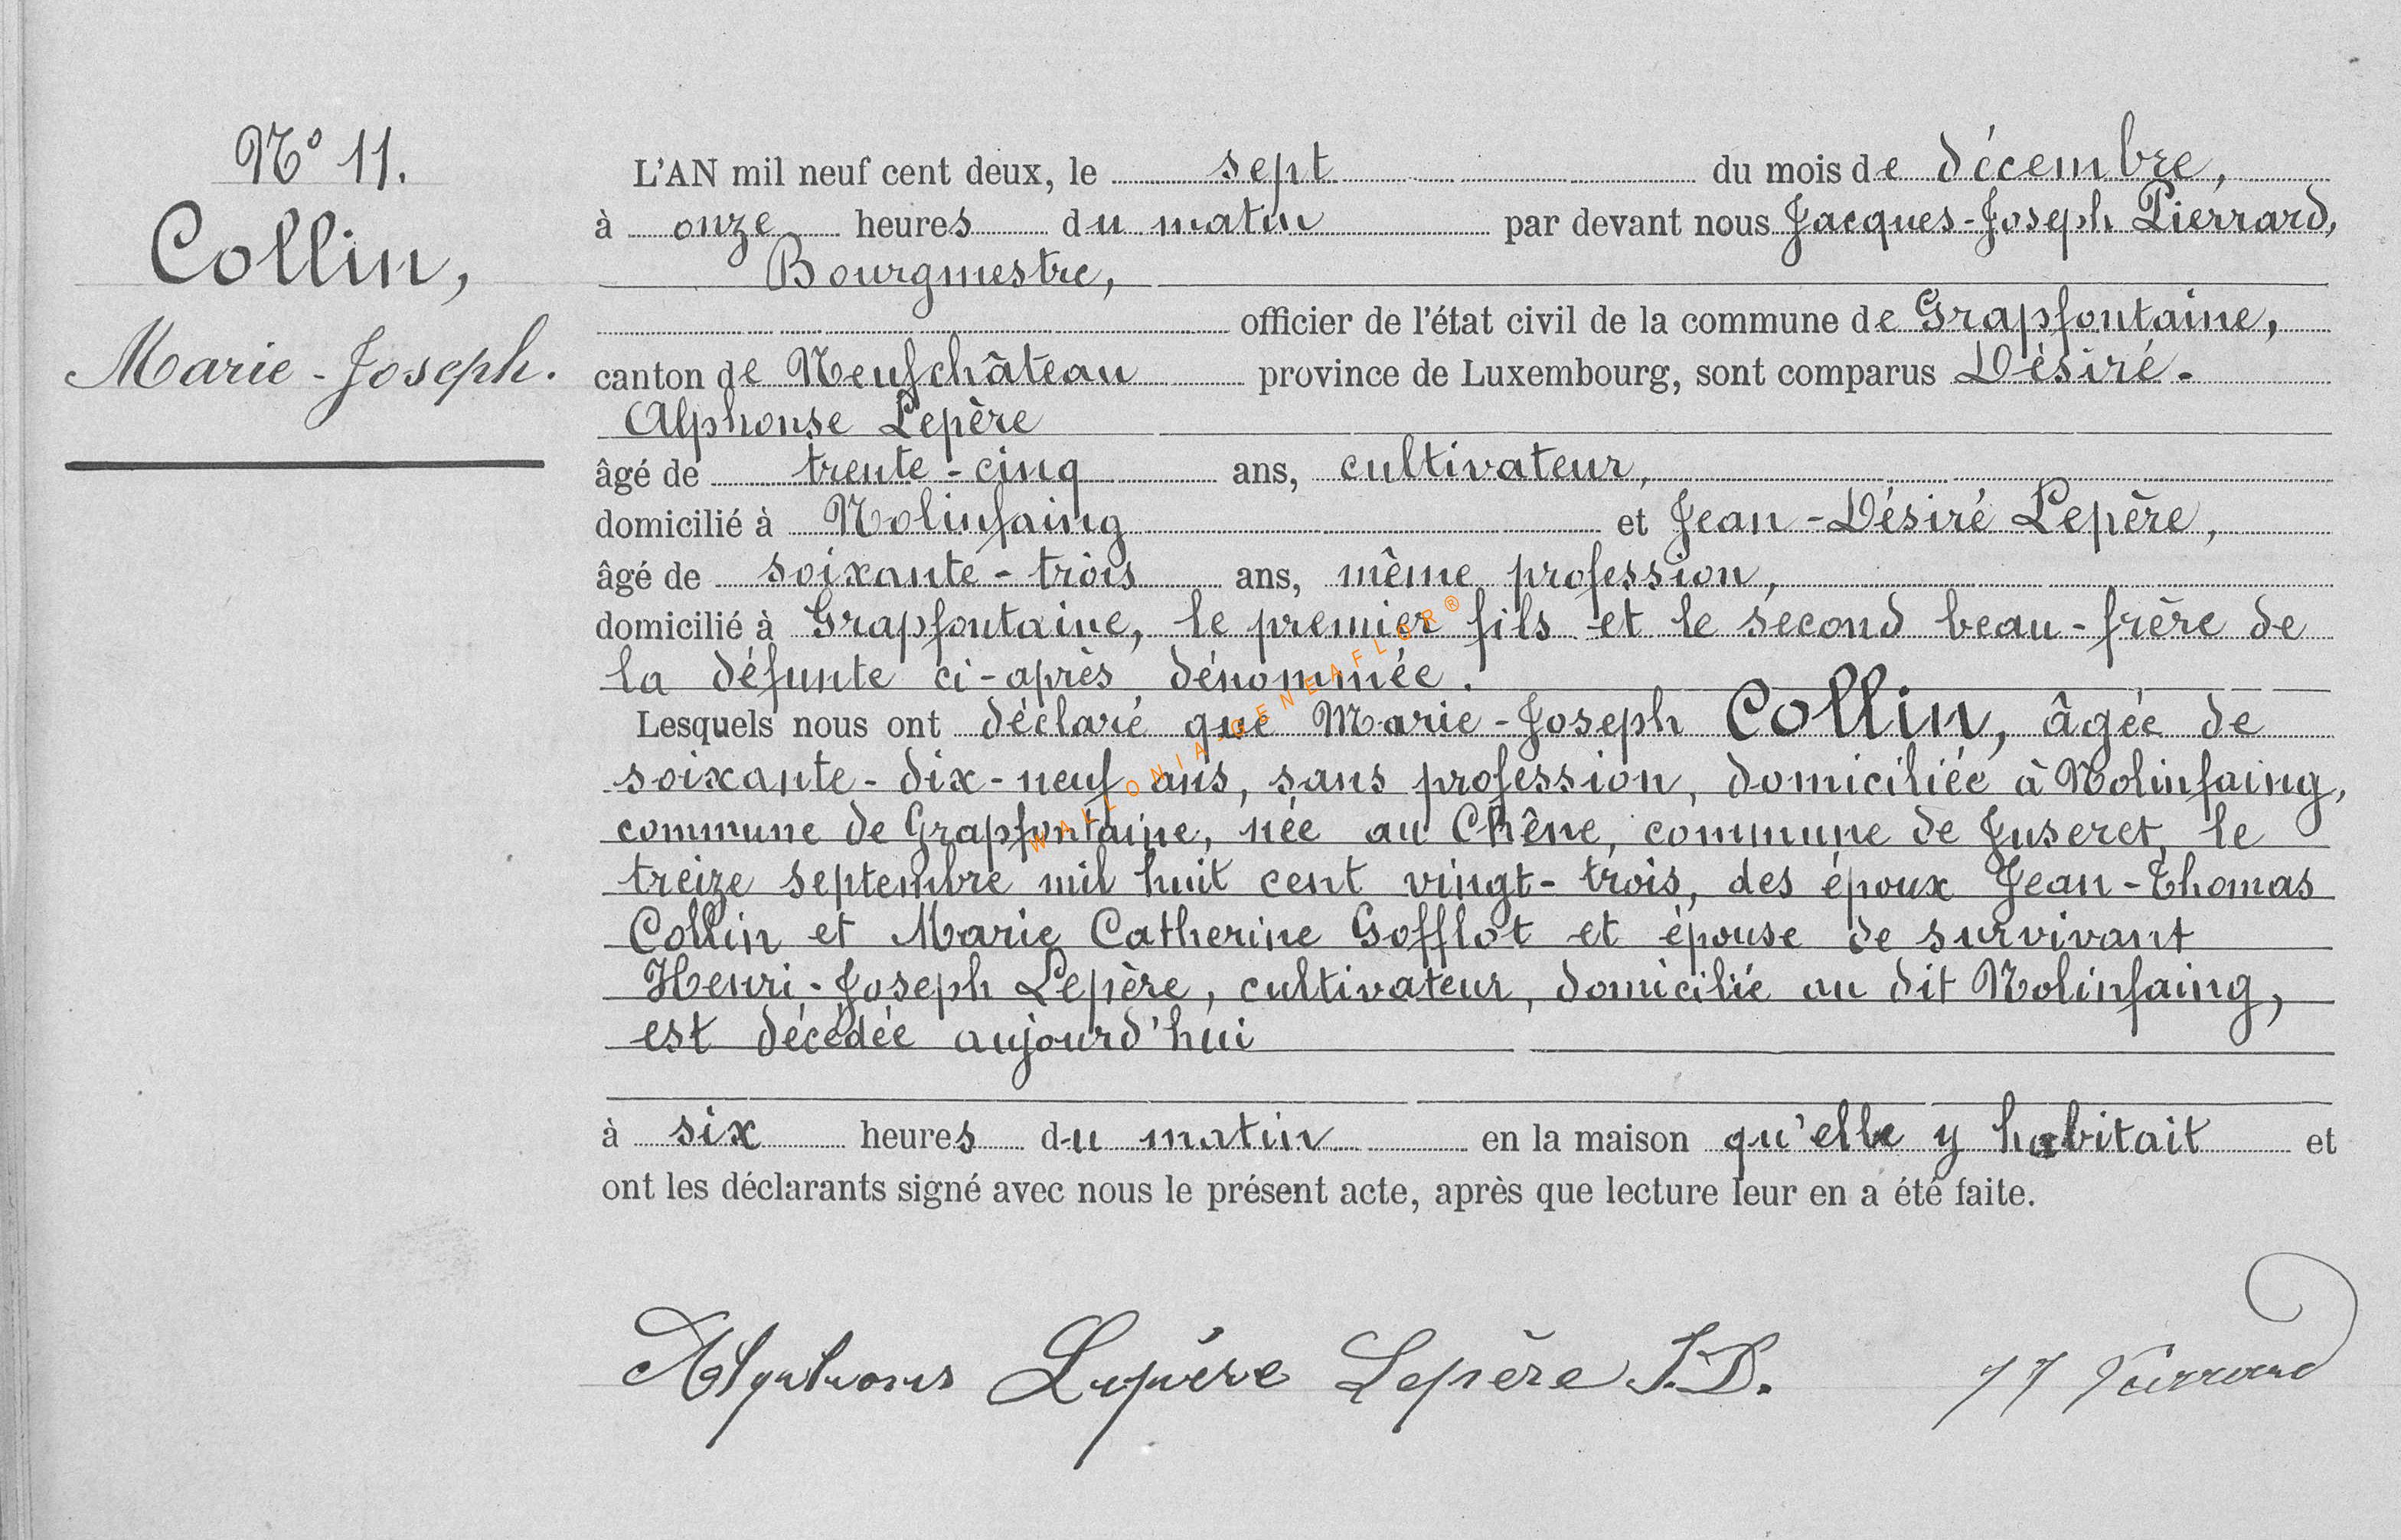 N° 11.
Collin,
Marie-Joseph.
L'AN mil neuf cent deux, le sept du mois de décembre,
à onze heures du matin par devant nous Jacques-Joseph Pierrard,
Bourgmestre,
officier de l'état civil de la commune de Grapfontaine,
canton de Neufchâteau province de Luxembourg, sont comparus Désiré-
Alphonse Lepère
âgé de trente-cinq ans, cultivateur,
domicilié à Nolinfaing et Jean-Désiré Lepère,
âgé de soixante-trois ans, même profession,
domicilié à Grapfontaine, le premier fils et le second beau-frère de
la défunte ci-après dénommée.
Lesquels nous ont déclaré que Marie-Joseph Collin, âgée de
soixante-dix-neuf ans, sans profession, domiciliée à Nolinfaing,
commune de Grapfontaine, née au Chêne, commune de Juseret, le
treize septembre mil huit cent vingt-trois, des époux Jean-Thomas
Collin et Marie Catherine Gofflot et épouse de survivant
Henri-Joseph Lepère, cultivateur, domicilié au dit Nolinfaing,
est décédée aujourd'hui
à six heures du matin en la maison qu'elle y habitait et
ont les déclarants signé avec nous le présent acte, après que lecture leur en a été faite.
Alphonse Lepère Lepère J.D. JJ Pierrard
WALLONIA-GENEAFLOR®